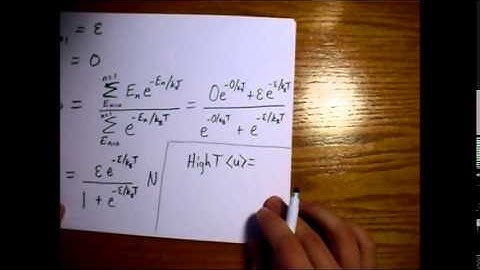 = ε
= 0
= \frac{\sum_{E_{n=0}}^{n=1} E_n e^{-E_n/k_BT}}{\sum_{E_{n=0}}^{n=1} e^{-E_n/k_BT}} = \frac{0e^{-0/k_BT} + εe^{-ε/k_BT}}{e^{-0/k_BT} + e^{-ε/k_BT}}
= \frac{εe^{-ε/k_BT}}{1 + e^{-ε/k_BT}} N
High T <u> =